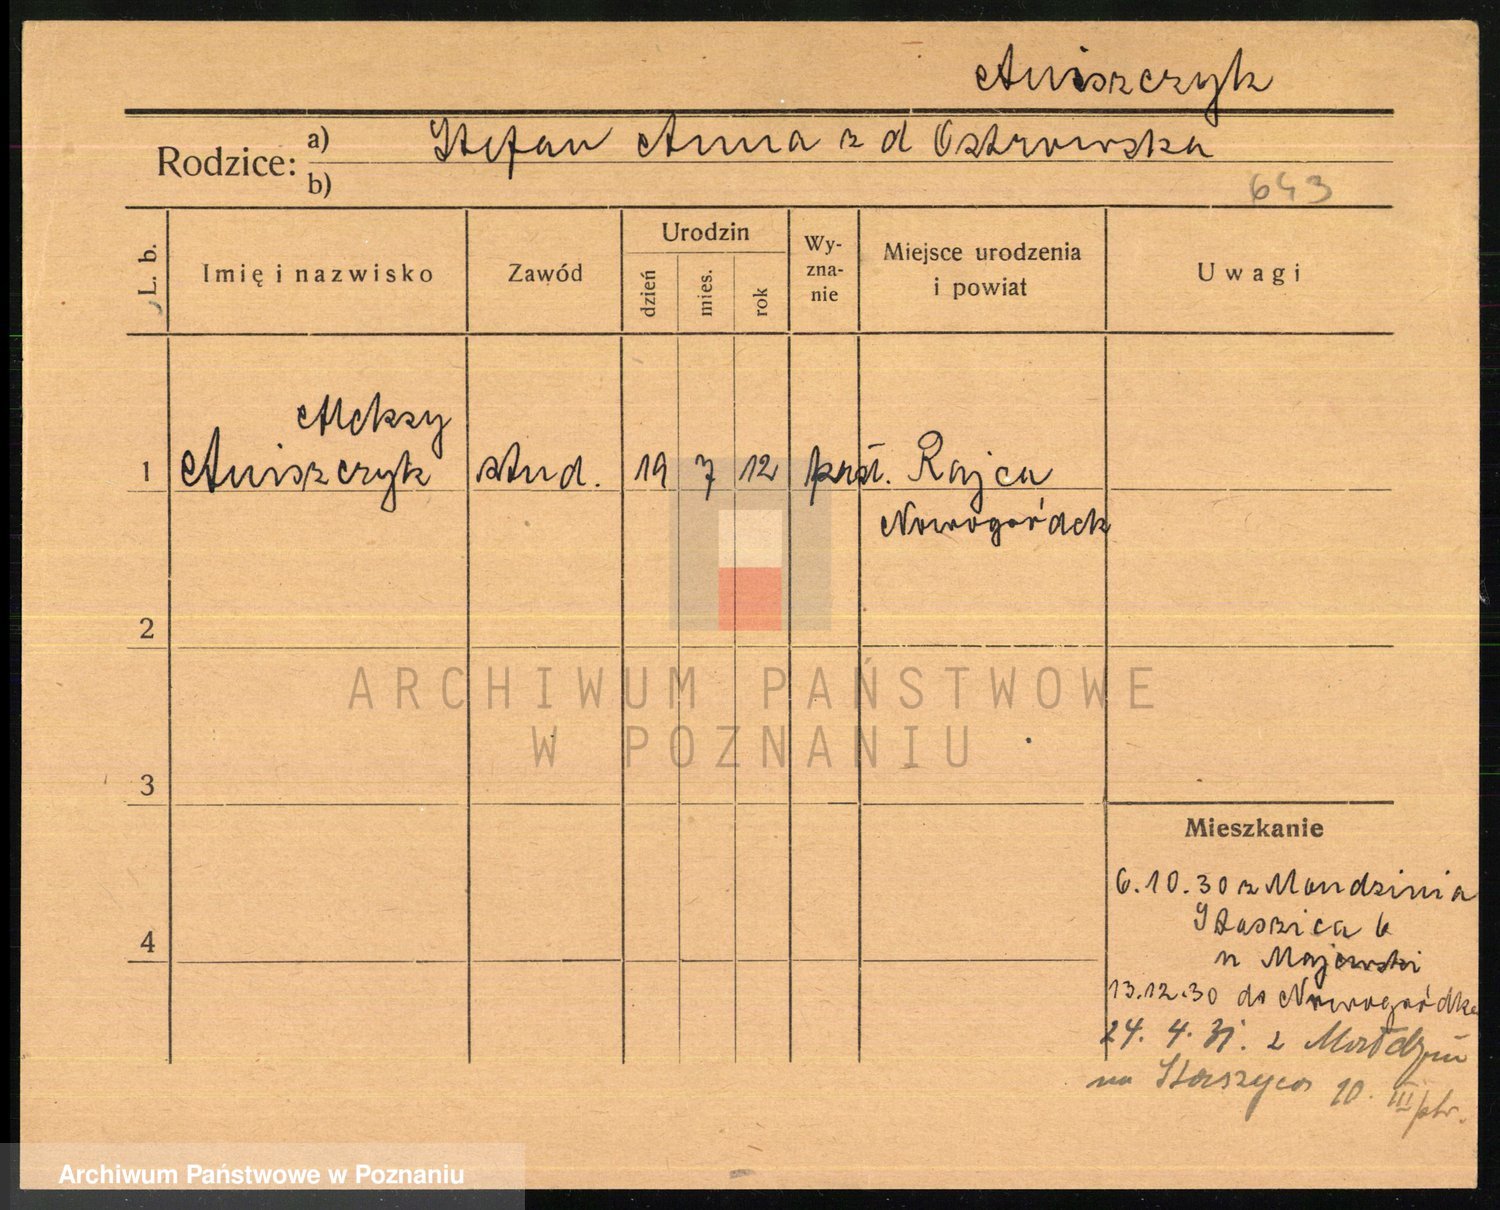 Aniszczyk
Rodzice: a) Stefan Anna z d Ostrowska
b)
643
L. b.
Imię i nazwisko
Zawód
Urodzin
dzień
mies.
rok
Wy-
zna-
nie
Miejsce urodzenia
i powiat
Uwagi
Aleksy
1 Aniszczyk stud. 19 7 12 Rajca
Nowogródek
2
ARCHIWUM PAŃSTWOWE
W POZNANIU
3
Mieszkanie
6.10.30 z
Staszica 6
u Majewski
4
13.12.30 do Nowogródka
24. 4. 31. z
na Staszyca 10. III ptr.
Archiwum Państwowe w Poznaniu